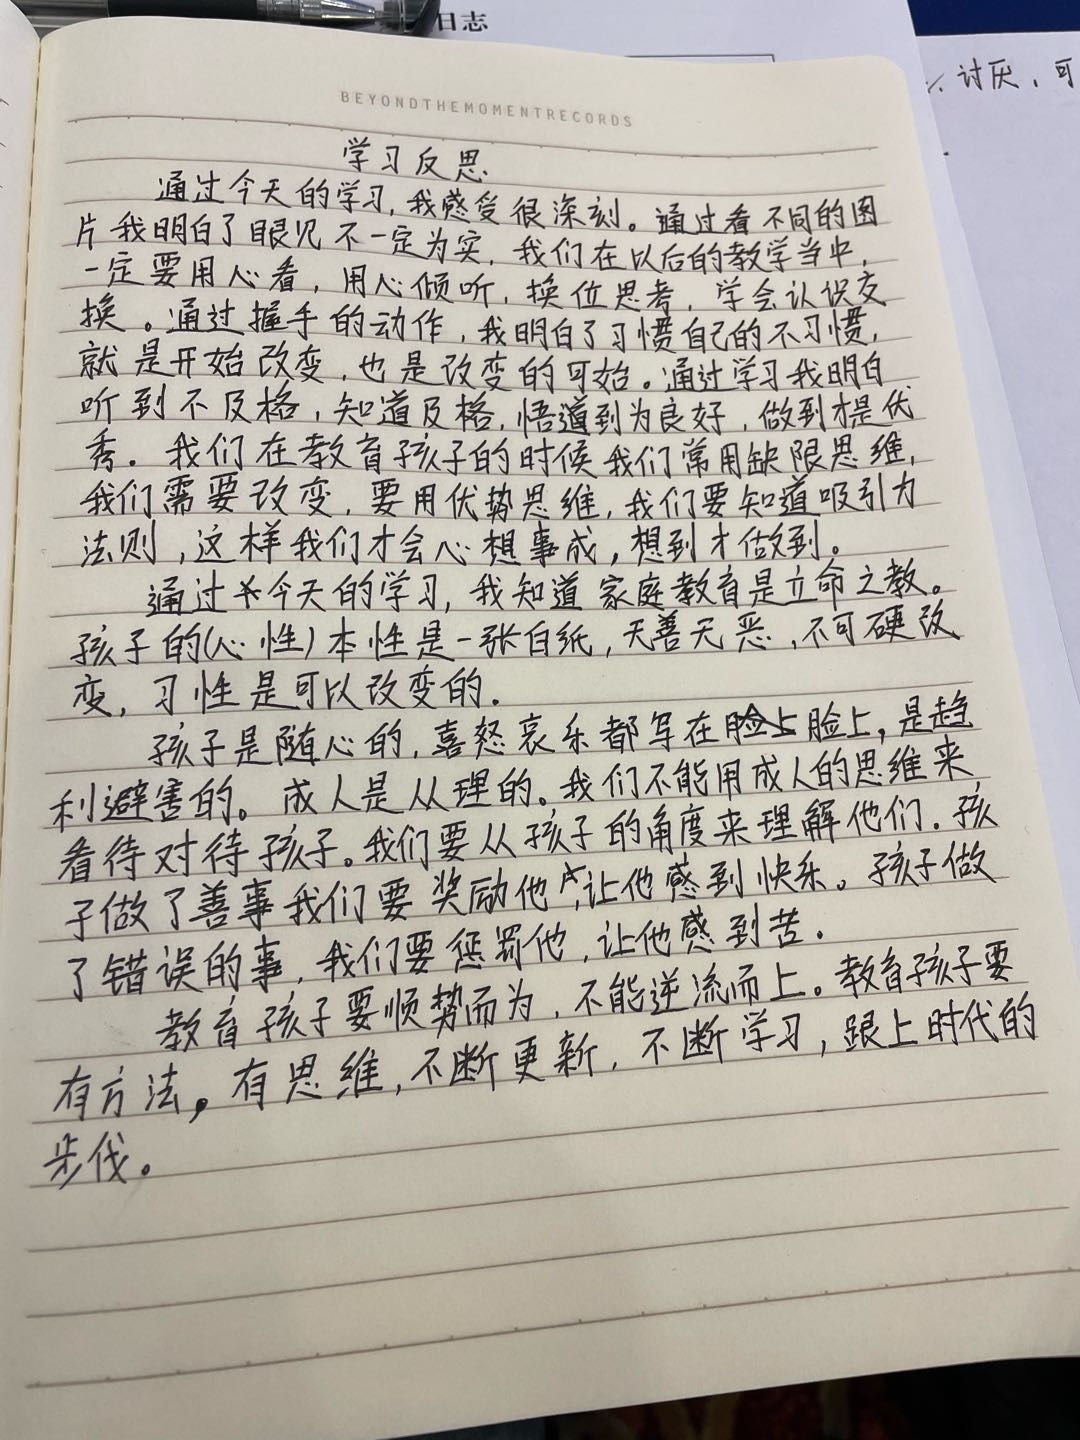 日志
讨厌，可
BEYONDTHEMOMENTRECORDS
学习反思
通过今天的学习，我感受很深刻。通过看不同的图
片我明白了眼见不一定为实，我们在以后的教学当中，
一定要用心看，用心倾听，换位思考，学会认识交
换。通过握手的动作，我明白了习惯自己的不习惯，
就是开始改变，也是改变的可始。通过学习我明白
听到不及格，知道及格，悟道到为良好，做到才是优
秀。我们在教育孩子的时候我们常用缺限思维，
我们需要改变，要用优势思维，我们要知道吸引力
法则，这样我们才会心想事成，想到才做到。
通过今天的学习，我知道家庭教育是立命之教。
孩子的(心性)本性是一张白纸，无善无恶，不可硬改
变，习性是可以改变的.
孩子是随心的，喜怒哀乐都写在脸上，是趋
利避害的。成人是从理的。我们不能用成人的思维来
看待对待孩子。我们要从孩子的角度来理解他们.孩
子做了善事我们要奖励他，让他感到快乐。孩子做
了错误的事，我们要惩罚他，让他感到苦.
教育孩子要顺势而为，不能逆流而上。教育孩子要
有方法，有思维，不断更新，不断学习，跟上时代的
步伐。